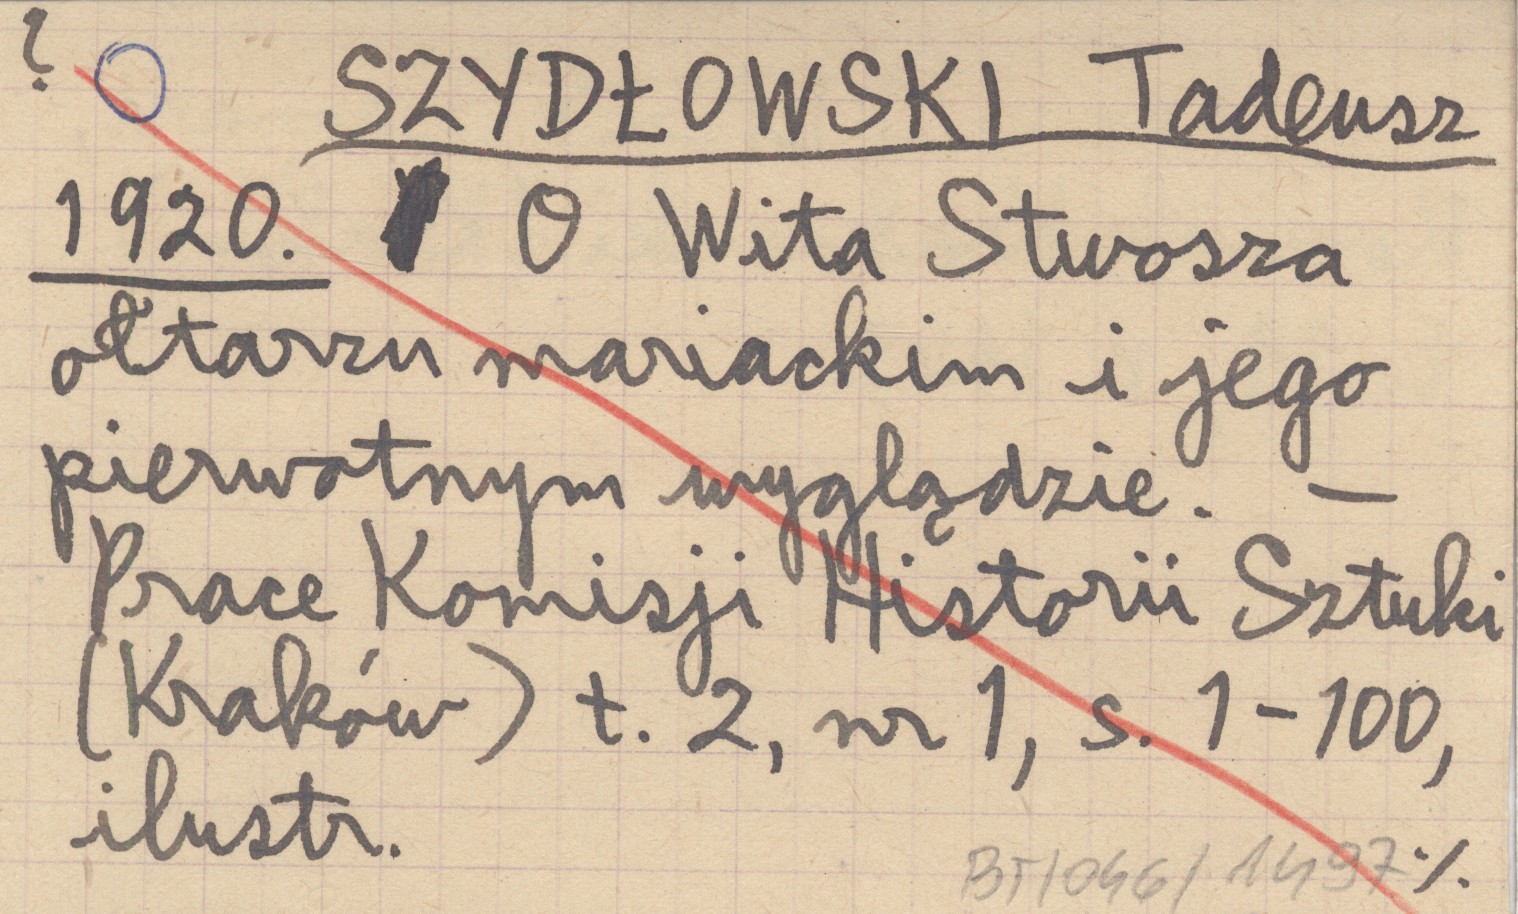 ?
SZYDŁOWSKI Tadeusz
1920. O Wita Stwosza
ołtarzu mariackim i jego
pierwotnym wyglądzie. —
Prace Komisji Historii Sztuki
(Kraków) t. 2, nr 1, s. 1-100,
ilustr.
BT/046/1497 ·/.